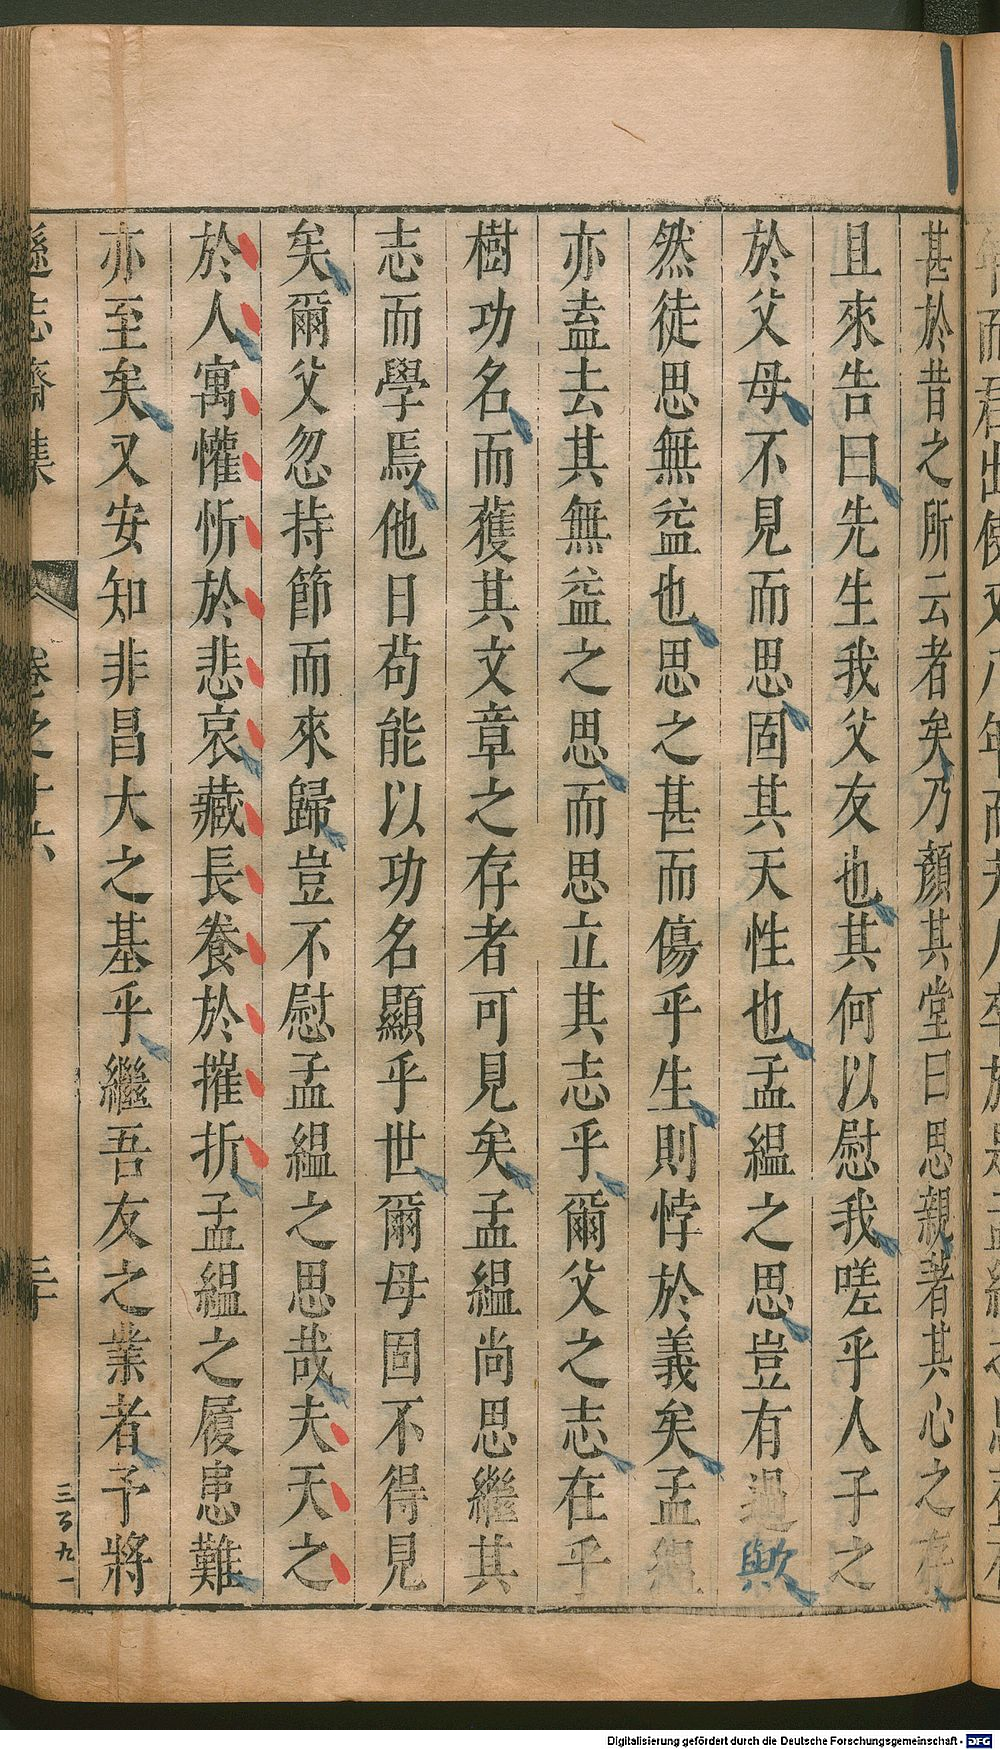 甚於昔之所云者矣乃顏其堂曰思親者其心之存
且來告曰先生我父友也其何以慰我嗟乎人子之
於父母不見而思固其天性也孟縕之思豈有過歟
然徒思無益也思之甚而傷乎生則悖於義矣孟縕
亦盍去其無益之思而思立其志乎爾父之志在乎
樹功名而獲其文章之存者可見矣孟縕尚思繼其
志而學焉他日茍能以功名顯乎世爾母固不得見
矣爾父忽持節而來歸豈不慰孟縕之思哉夫天之
於人寓懽忻於悲哀藏長養於摧折孟縕之履患難
亦至矣又安知非昌大之基乎繼吾友之業者予將
遜志齋集 卷之十六 三十
三百九一
Digitalisierung gefördert durch die Deutsche Forschungsgemeinschaft - DFG